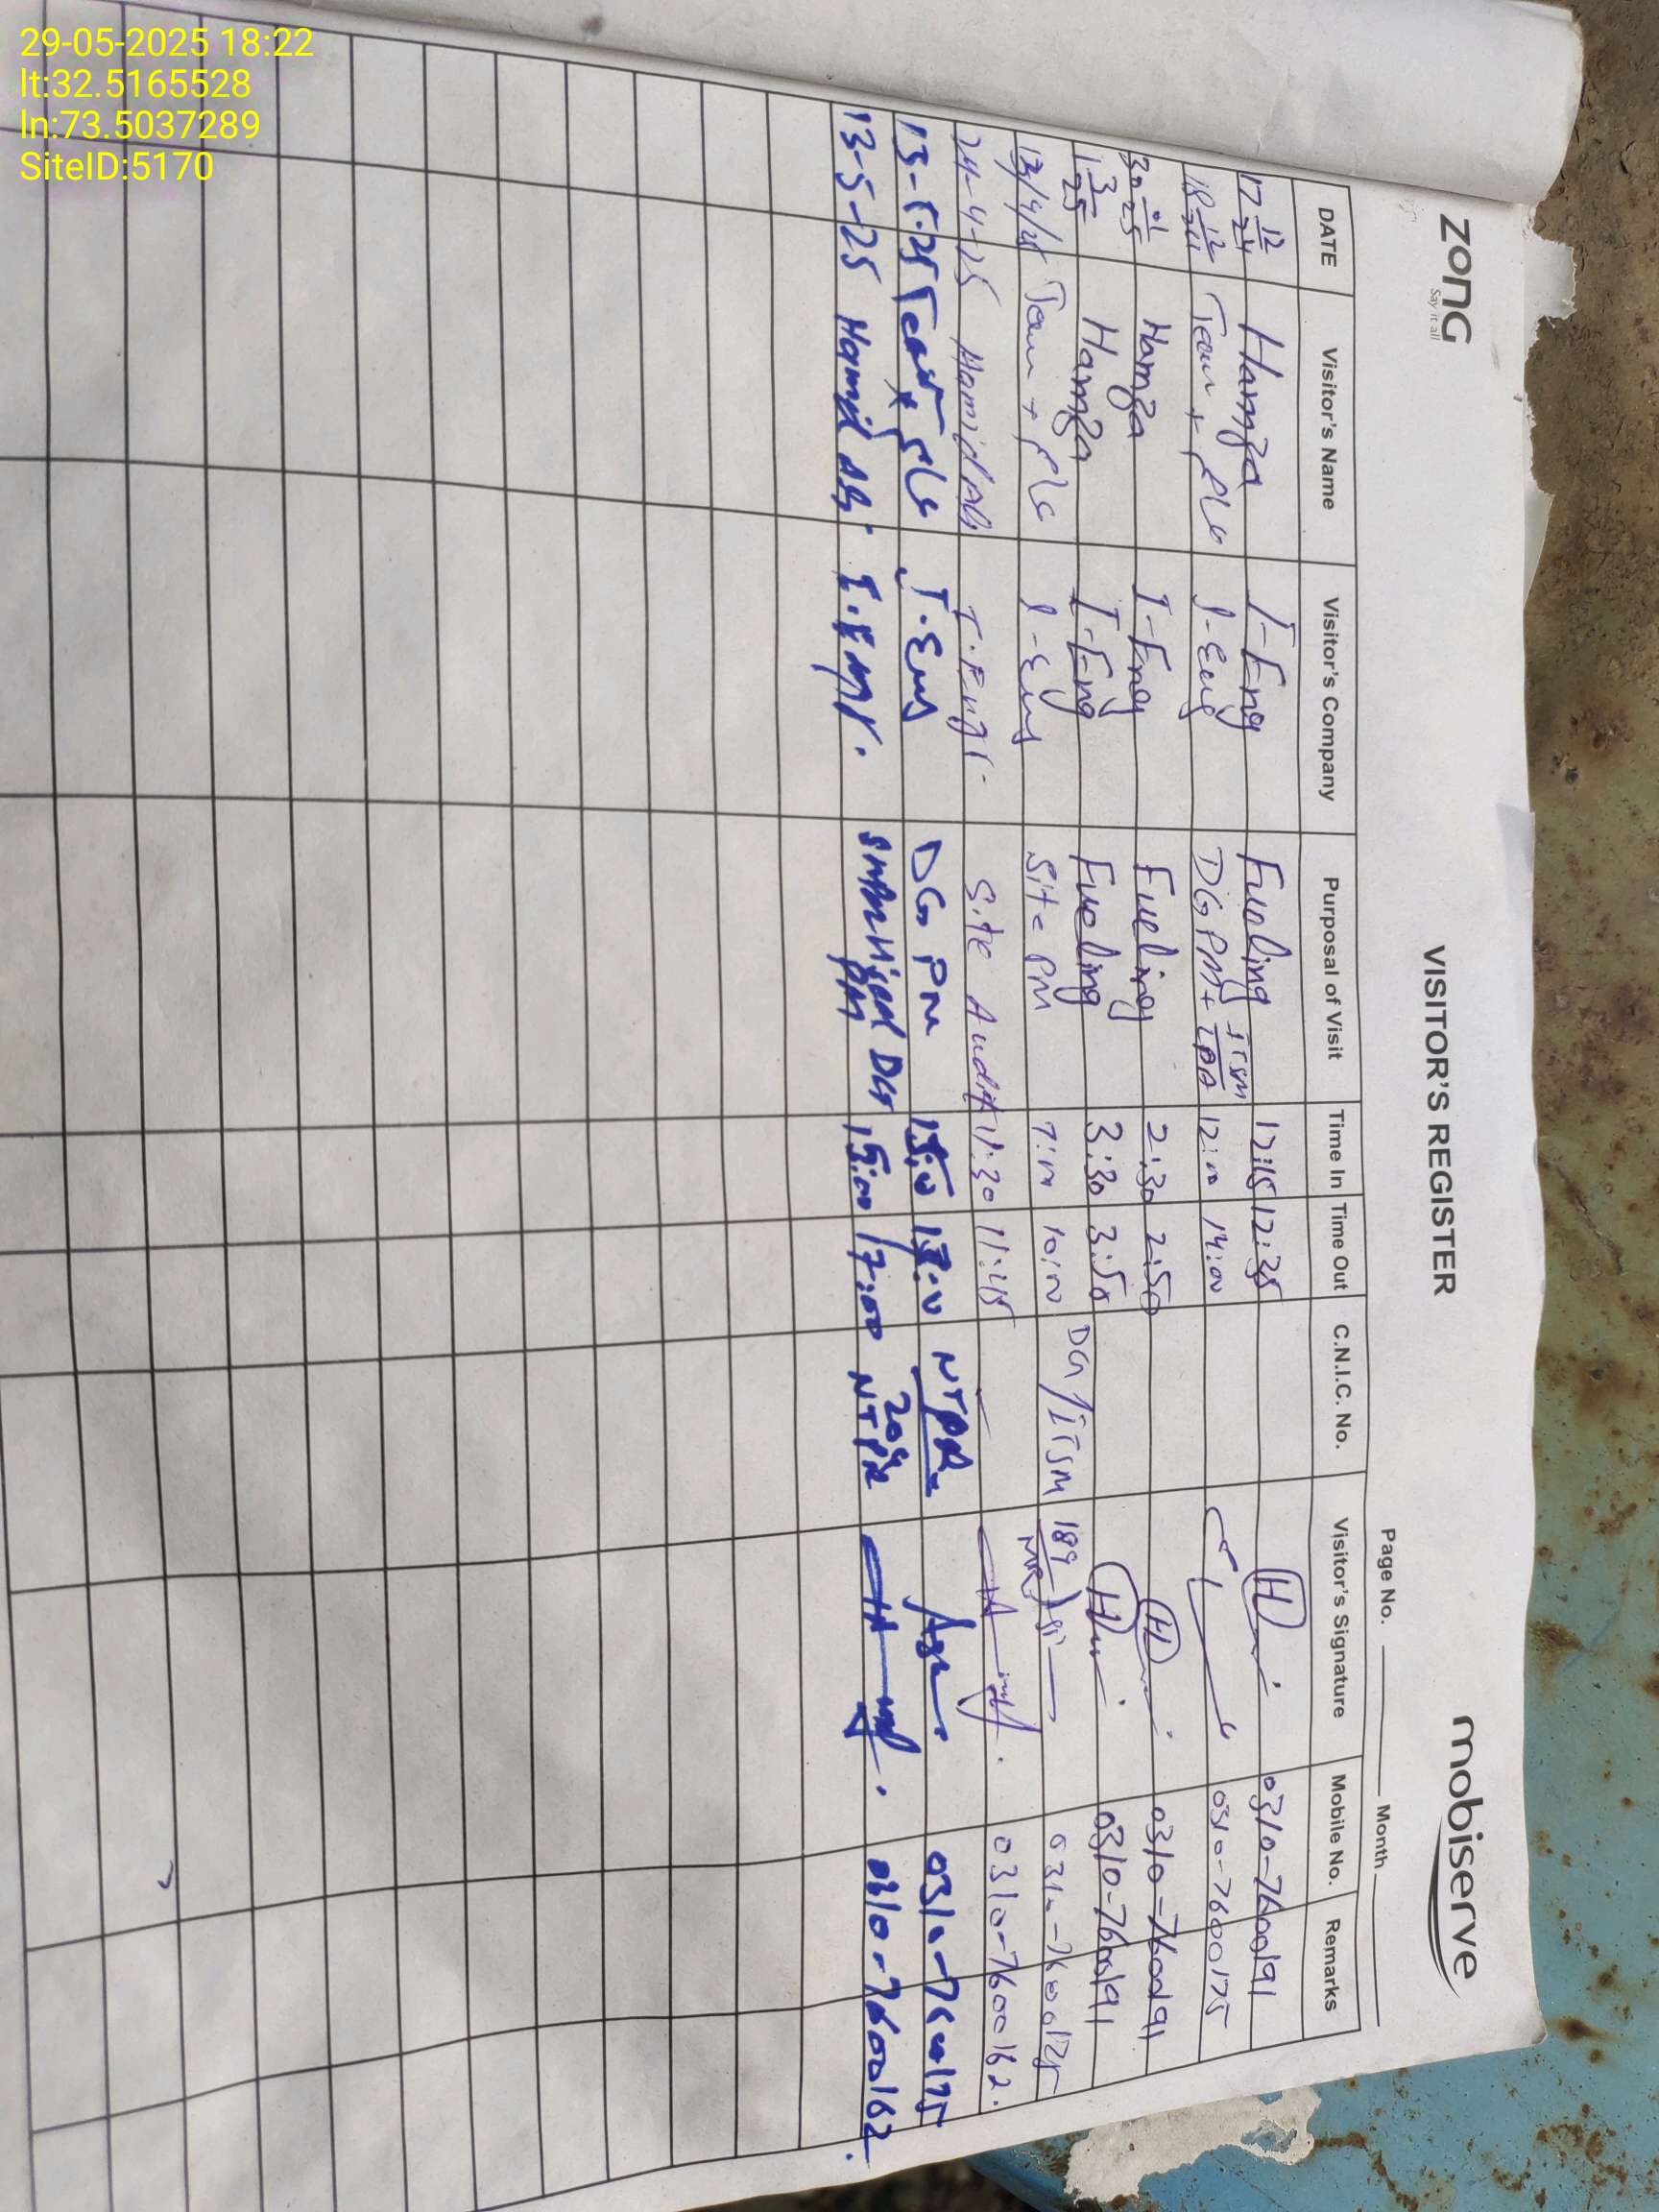 29-05-2025 18:22
lt:32.5165528
ln:73.5037289
SiteID:5170
zong
Say it all
VISITOR'S REGISTER
mobiserve
Page No. Month
DATE Visitor's Name Visitor's Company Purposal of Visit Time In Time Out C.N.I.C. No. Visitor's Signature Mobile No. Remarks
17 12/24 Hamza I-Eng Fueling 12:15 12:35 0310-7600191
18 12/24 Team + I-Eng DG PM+ ITSM 12:00 14:00 0310-7600175
30 01/25 Hamza I-Eng Fueling 2:30 2:50 0310-7600191
1 3/25 Hamza I-Eng Fueling 3:30 3:50 0310-7600191
Team + I-Eng Site PM 10:00 DG/ITSM 189 0310-7600175
24-4-25 Hamid Ali I.Engr. Site Audit 11:30 11:45 0310-7600162.
13-5-25 I-Eng DG PM 0310-7600175
13-5-25 Hamid Ali I.Engr. DG PM 15:00 17:00 0310-7600162.